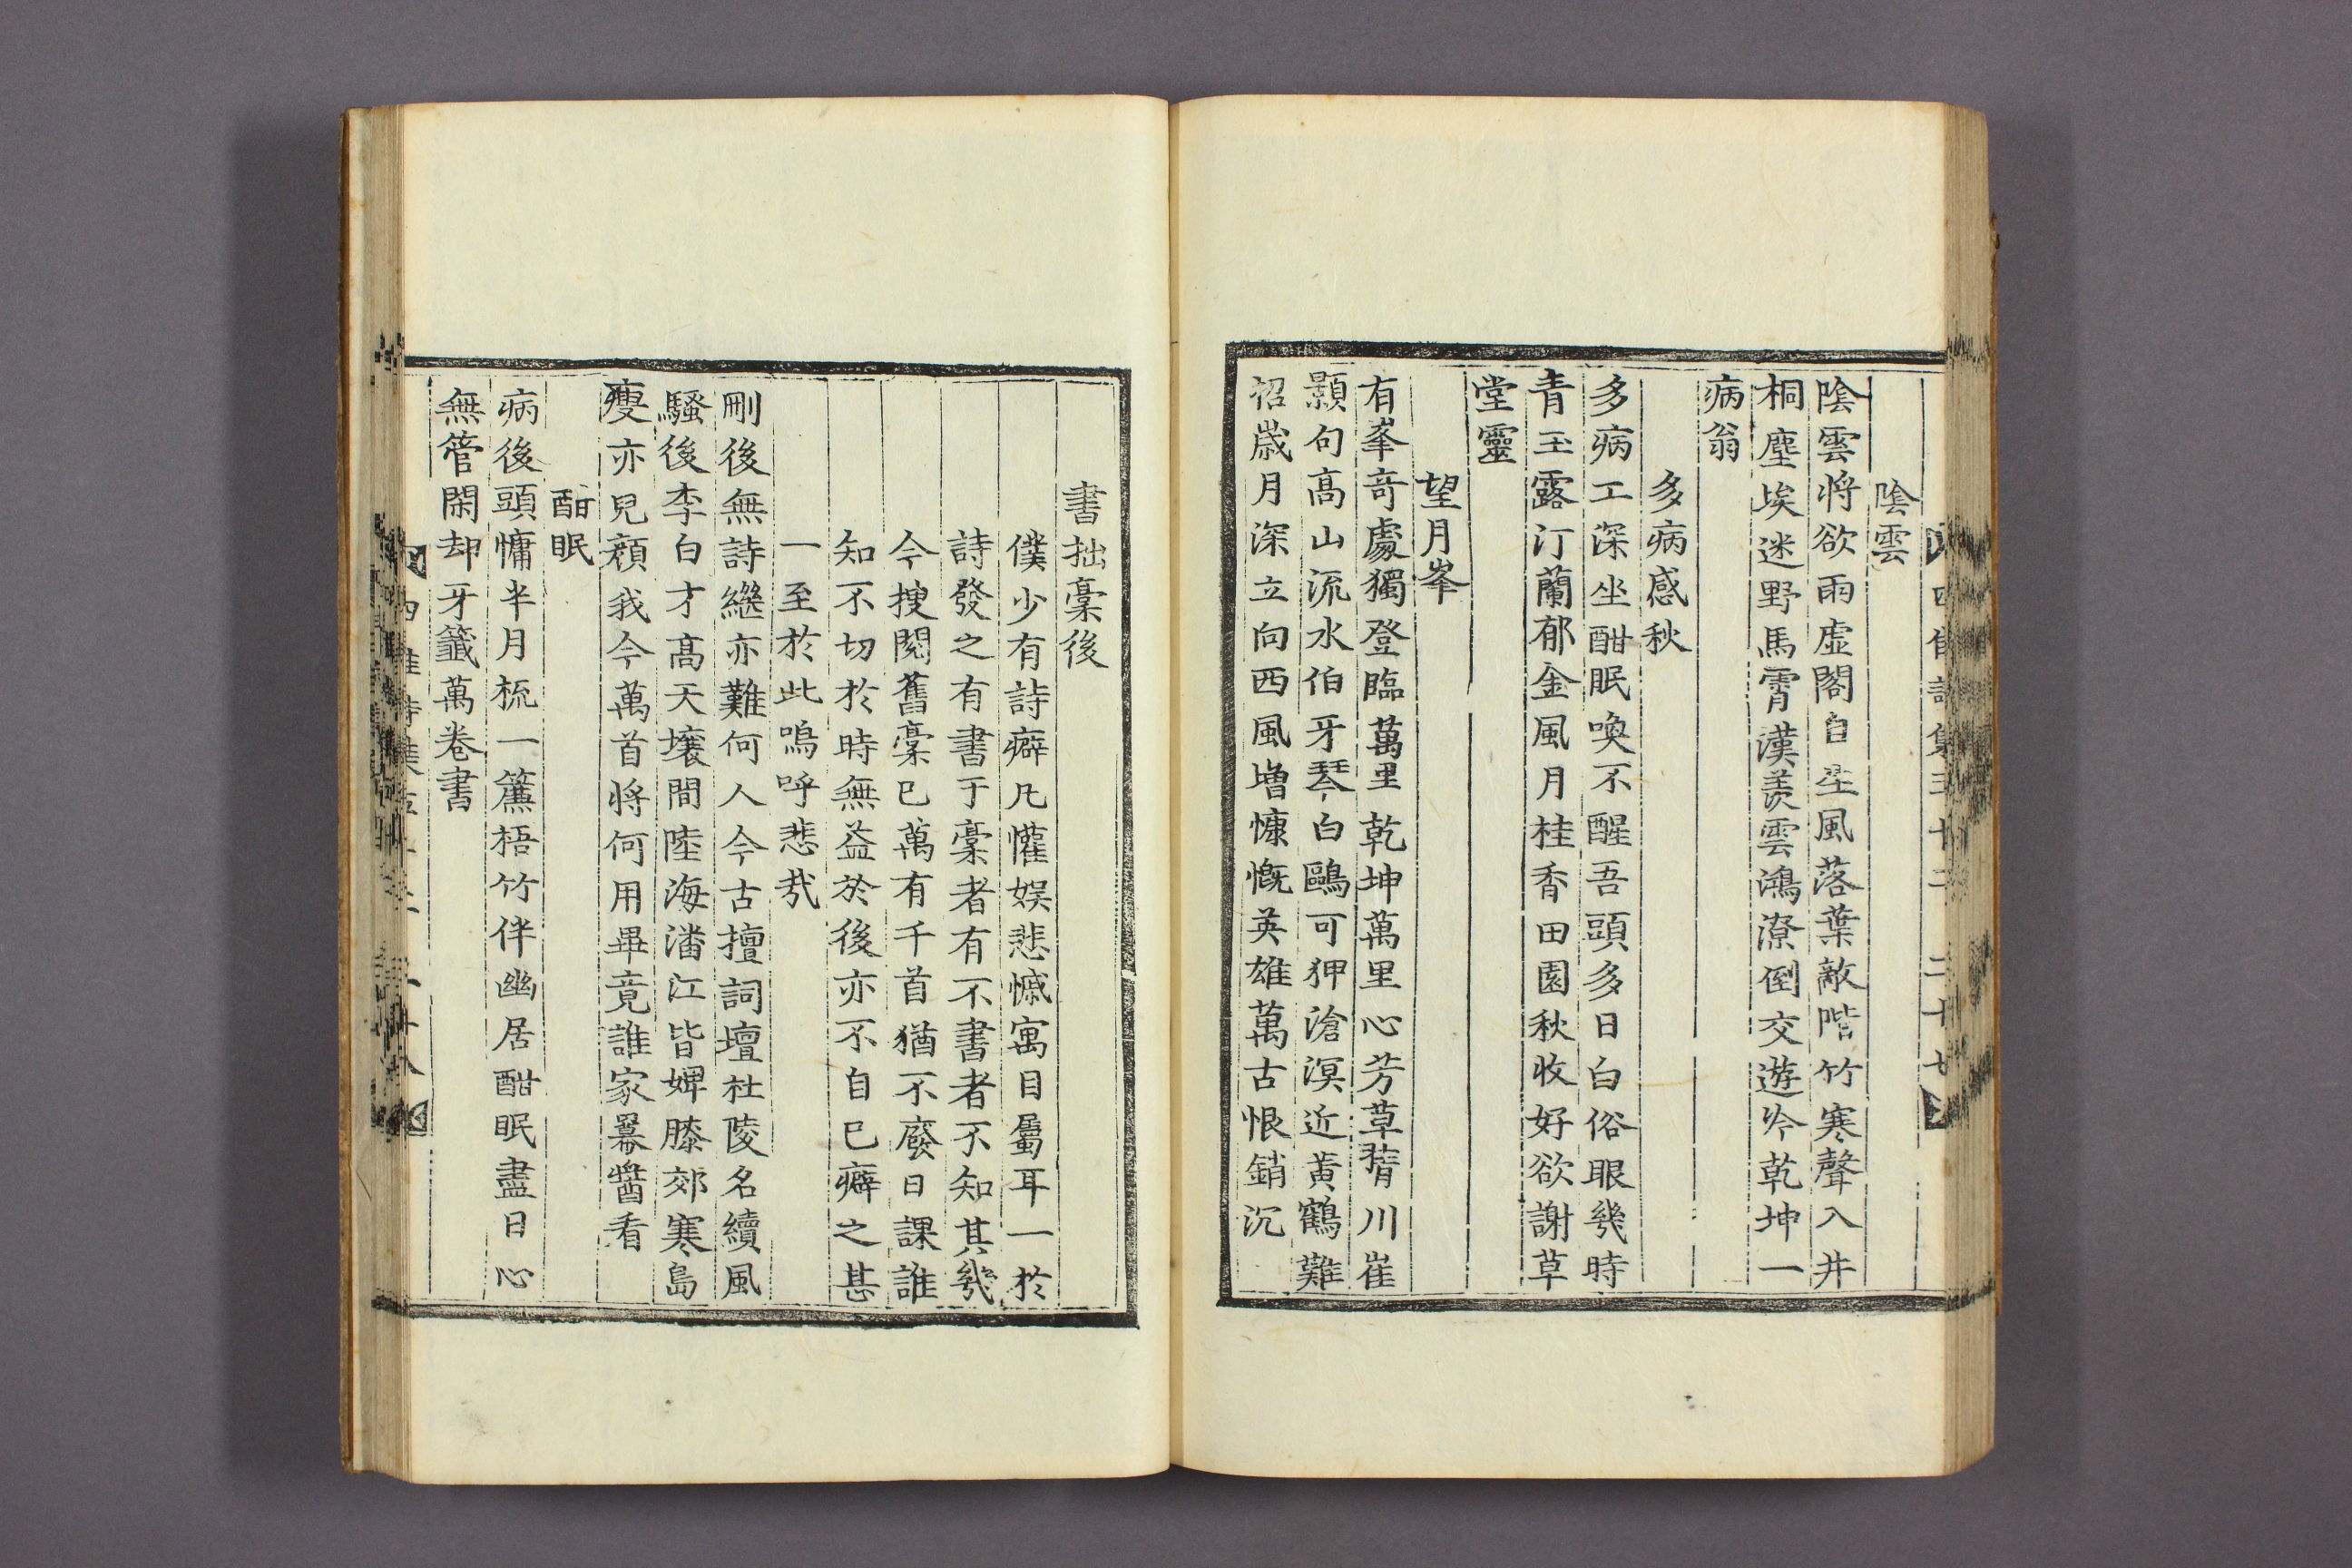 陰雲
陰雲将欲雨虚閣自生風落葉敲階竹寒聲入井
桐塵埃迷野馬霄漢羨雲鴻潦倒交遊吟乾坤一
病翁
多病感秋
多病工深坐酣眠喚不醒吾頭多日白俗眼幾時
青玉露汀蘭郁金風月桂香田園秋收好欲謝草
堂靈
望月峯
有峯竒處獨登臨萬里乾坤萬里心芳草晴川崔
顥句高山流水伯牙琴白鷗可狎滄溟近黃鶴難
招歲月深立向西風增慷慨英雄萬古恨銷沉
書拙藁後
僕少有詩癖凡懽娱悲慽寓目屬耳一於
詩發之有書于藁者有不書者不知其幾
今搜閱舊藁已萬有千首猶不廢日課誰
知不切於時無益於後亦不自已癖之甚
一至於此嗚呼悲哉
刪後無詩繼亦難何人今古擅詞壇杜陵名續風
騷後李白才高天壤間陸海潘江皆婢膝郊寒島
瘦亦兒顔我今萬首将何用畢竟誰家羃醬看
酣眠
病後頭慵半月梳一簾梧竹伴幽居酣眠盡日心
無管閑却牙籤萬卷書